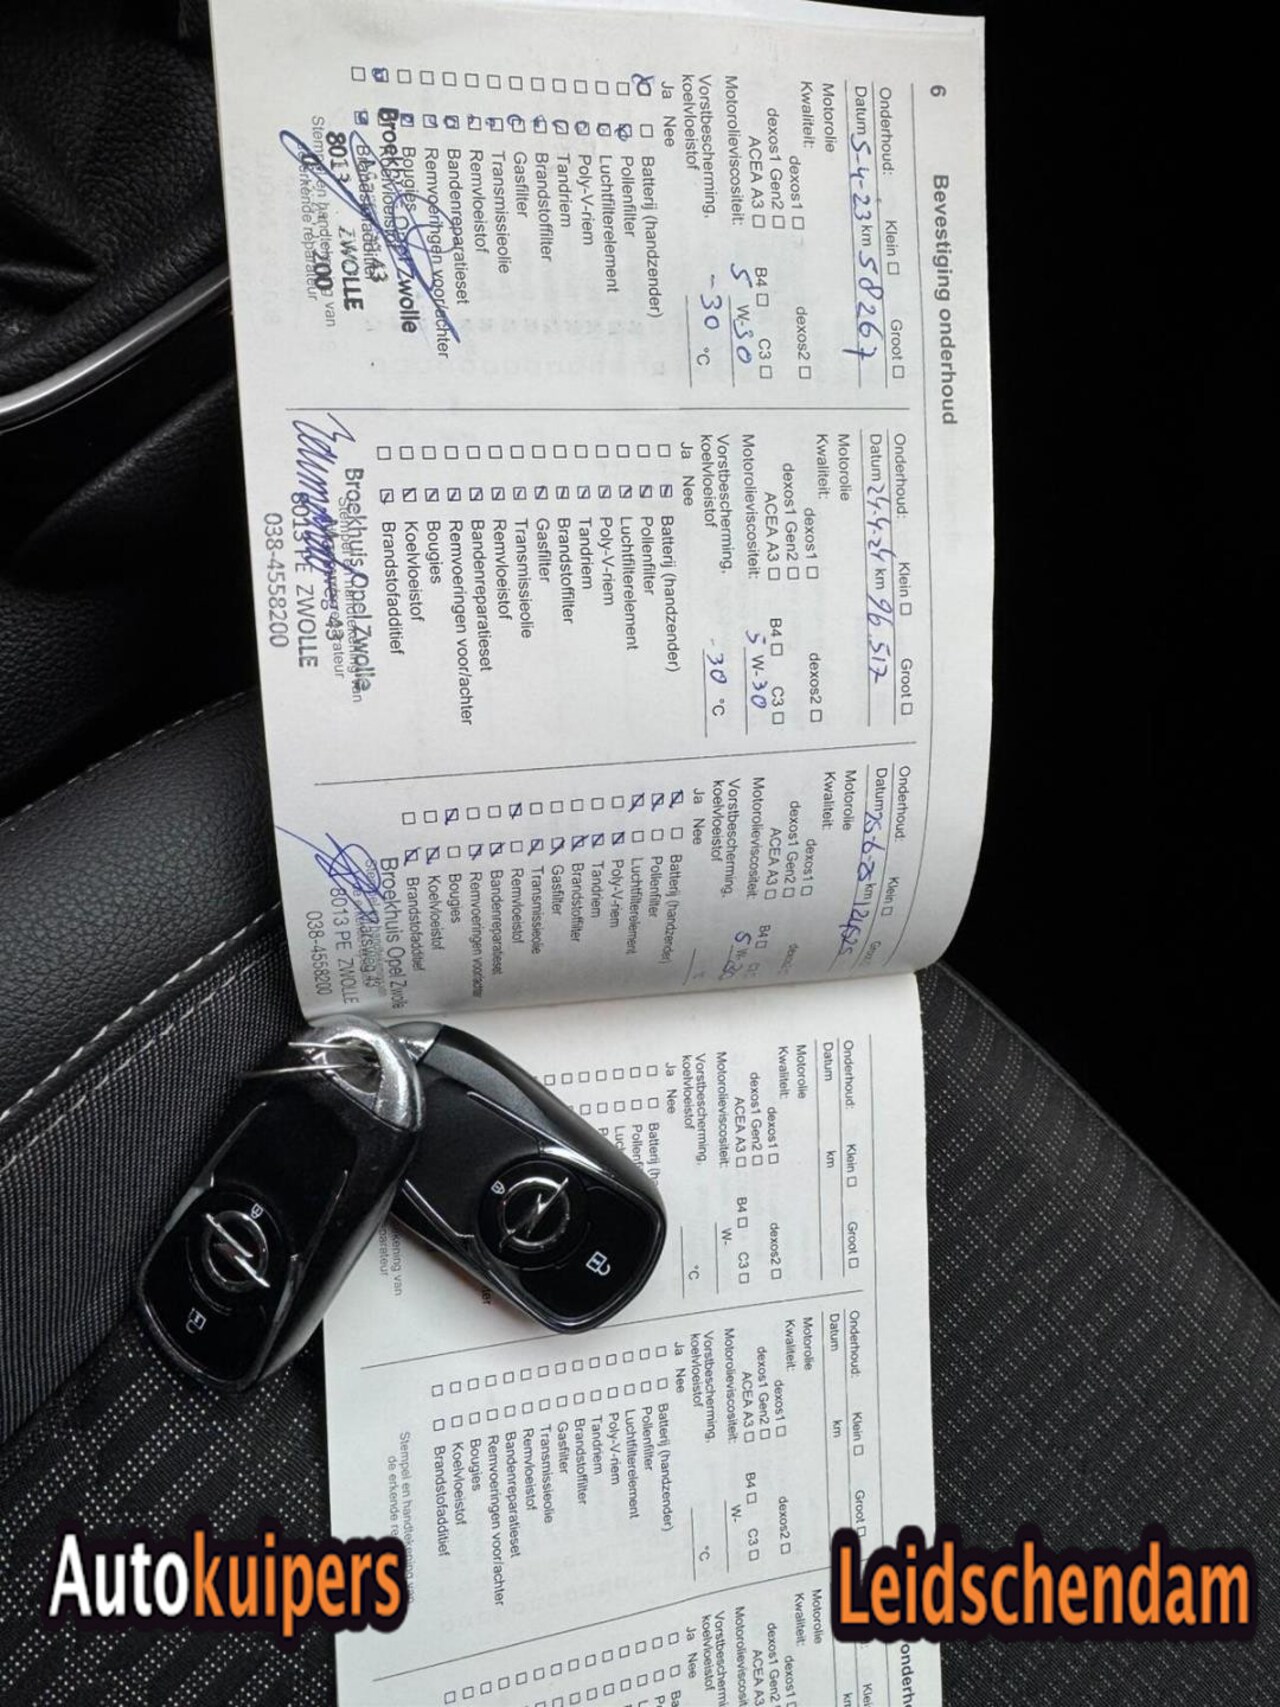 6 Bevestiging onderhoud
Onderhoud: Klein Groot
Datum 5-4-23 km 58267
Motorolie
Kwaliteit: dexos1 dexos2
dexos1 Gen2
ACEA A3 B4 C3
Motorolieviscositeit: 5 W-30
Vorstbescherming,
koelvloeistof -30 °C
Ja Nee
Batterij (handzender)
Pollenfilter
Luchtfilterelement
Poly-V-riem
Tandriem
Brandstoffilter
Gasfilter
Transmissieolie
Remvloeistof
Bandenreparatieset
Remvoeringen voor/achter
Bougies
Koelvloeistof
Brandstofadditief
Stempel en handtekening van
de erkende reparateur
Broekhuis Opel Zwolle
8013 ZWOLLE
Onderhoud: Klein Groot
Datum 24-4-24 km 96.517
Motorolie
Kwaliteit: dexos1 dexos2
dexos1 Gen2
ACEA A3 B4 C3
Motorolieviscositeit: 5 W-30
Vorstbescherming,
koelvloeistof -30 °C
Ja Nee
Batterij (handzender)
Pollenfilter
Luchtfilterelement
Poly-V-riem
Tandriem
Brandstoffilter
Gasfilter
Transmissieolie
Remvloeistof
Bandenreparatieset
Remvoeringen voor/achter
Bougies
Koelvloeistof
Brandstofadditief
Broekhuis Opel Zwolle
8013 PE ZWOLLE
038-4558200
Onderhoud: Klein
Datum 25-6-25 km
Motorolie
Kwaliteit: dexos1
dexos1 Gen2
ACEA A3 B4
Motorolieviscositeit: 5 W-
Vorstbescherming,
koelvloeistof
Ja Nee
Batterij (handzender)
Pollenfilter
Luchtfilterelement
Poly-V-riem
Tandriem
Brandstoffilter
Gasfilter
Transmissieolie
Remvloeistof
Bandenreparatieset
Remvoeringen voor/achter
Bougies
Koelvloeistof
Brandstofadditief
Broekhuis Opel Zwolle
8013 PE ZWOLLE
038-4558200
Onderhoud: Klein Groot
Datum km
Motorolie
Kwaliteit: dexos1 dexos2
dexos1 Gen2
ACEA A3 B4 C3
Motorolieviscositeit: W-
Vorstbescherming,
koelvloeistof °C
Ja Nee
Batterij (h
Pollenf
Luch
Onderhoud: Klein Groot
Datum km
Motorolie
Kwaliteit: dexos1 dexos2
dexos1 Gen2
ACEA A3 B4 C3
Motorolieviscositeit: W-
Vorstbescherming,
koelvloeistof °C
Ja Nee
Batterij (handzender)
Pollenfilter
Luchtfilterelement
Poly-V-riem
Tandriem
Brandstoffilter
Gasfilter
Transmissieolie
Remvloeistof
Bandenreparatieset
Remvoeringen voor/achter
Bougies
Koelvloeistof
Brandstofadditief
Stempel en handtekening van
de erkende re
onderh
Motorolie
Kwaliteit: dexos1
dexos1 Gen2
ACEA A3
Vorstbescherming,
koelvloeistof
Ja Nee
Autokuipers
Leidschendam